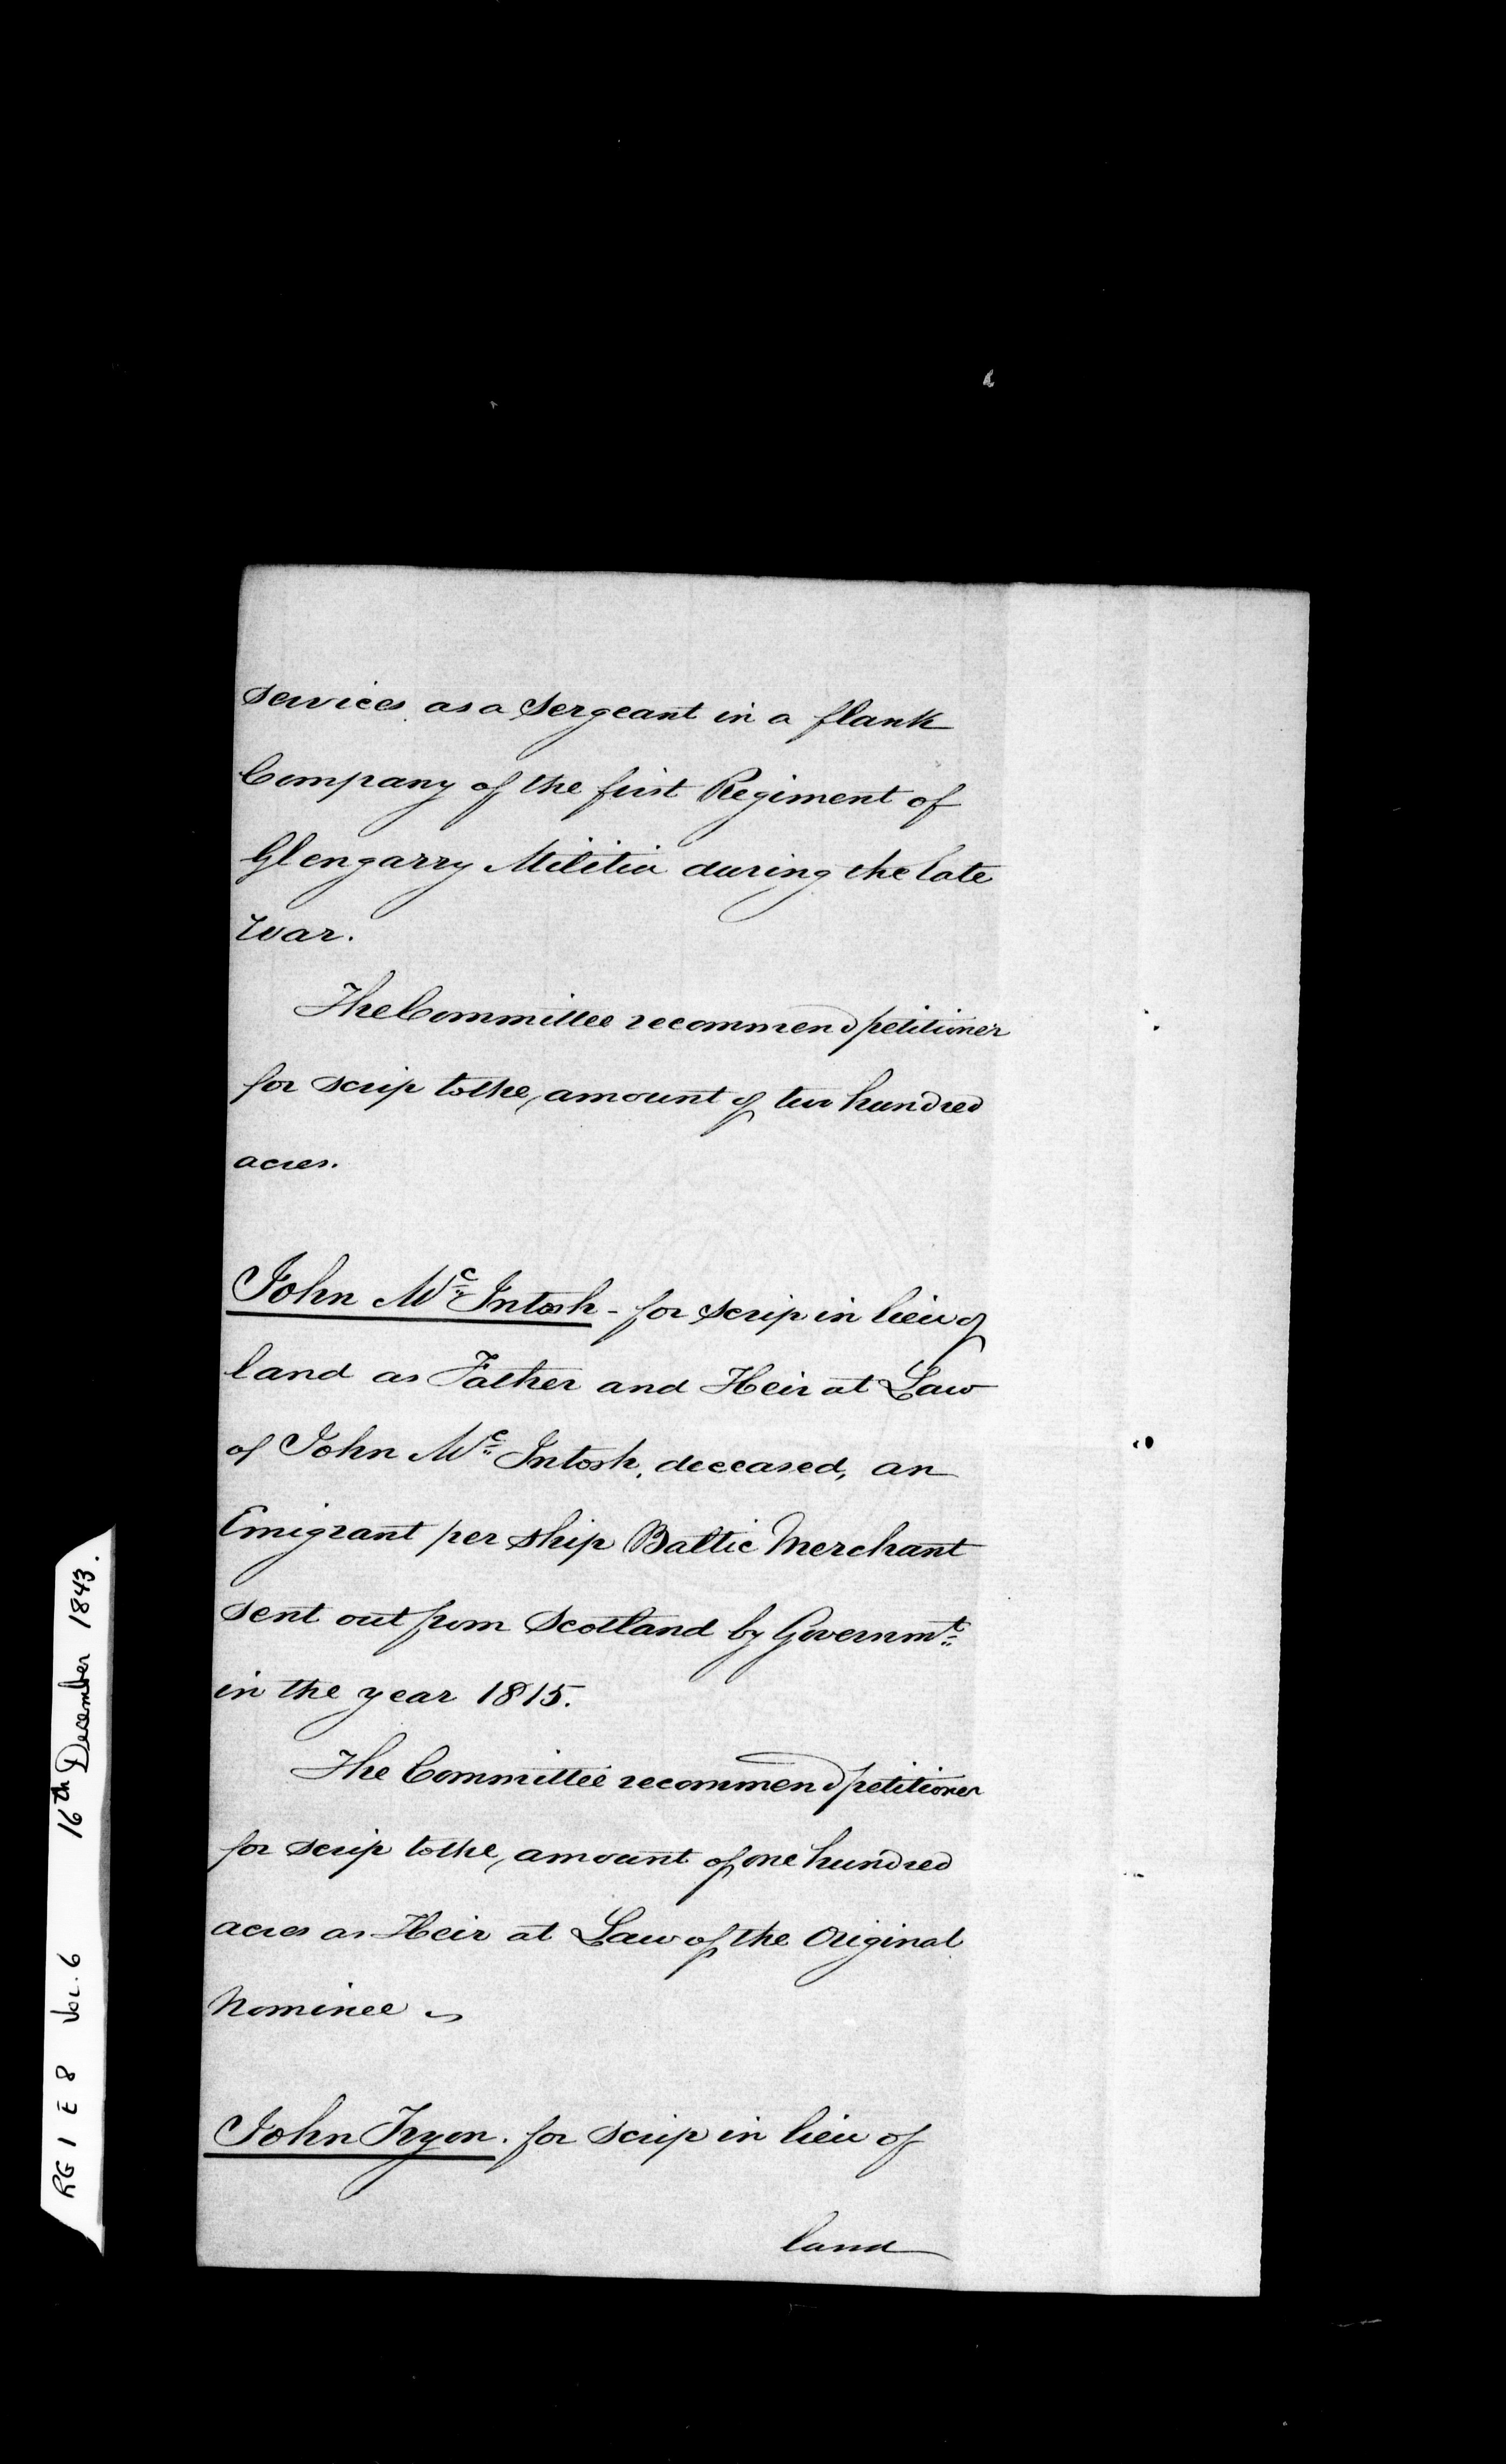 services as a Sergeant in a flank
Company of the first Regiment of
Glengarry Militia during the late
War.
The Committee recommend petitioner
for scrip to the amount of two hundred
acres.
John Mc Intosh - for scrip in lieu of
land as Father and Heir at Law
of John Mc Intosh, deceased, an
Emigrant per ship Baltic Merchant
sent out from Scotland by Governmt
in the year 1815.
The Committee recommend petitioner
for scrip to the amount of one hundred
acres as Heir at Law of the Original
Nominee
John Tryon. for scrip in lieu of
land
RG 1 E 8 Vol. 6 16th December 1843.